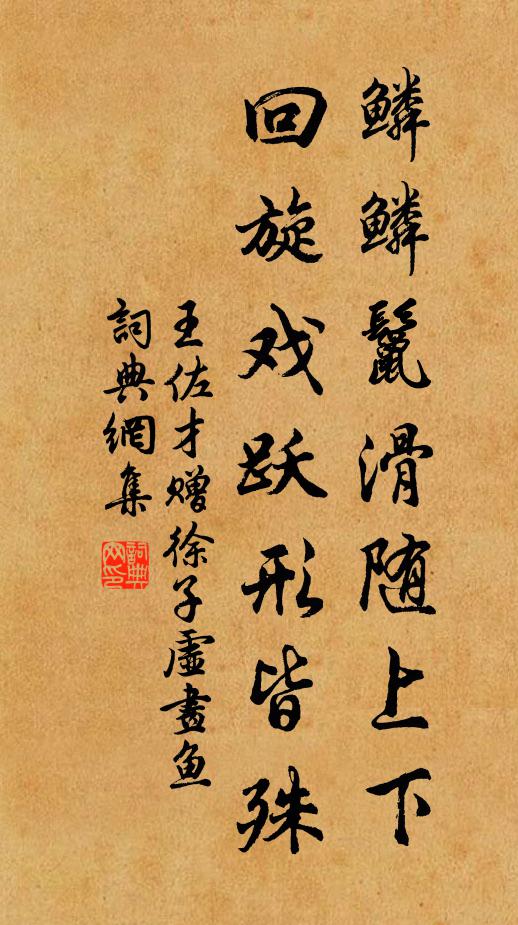 鳞鳞鬣滑随上下
回旋戏跃形皆殊
王佐才赠徐子虚畫魚
詞典網集
詞典
网印